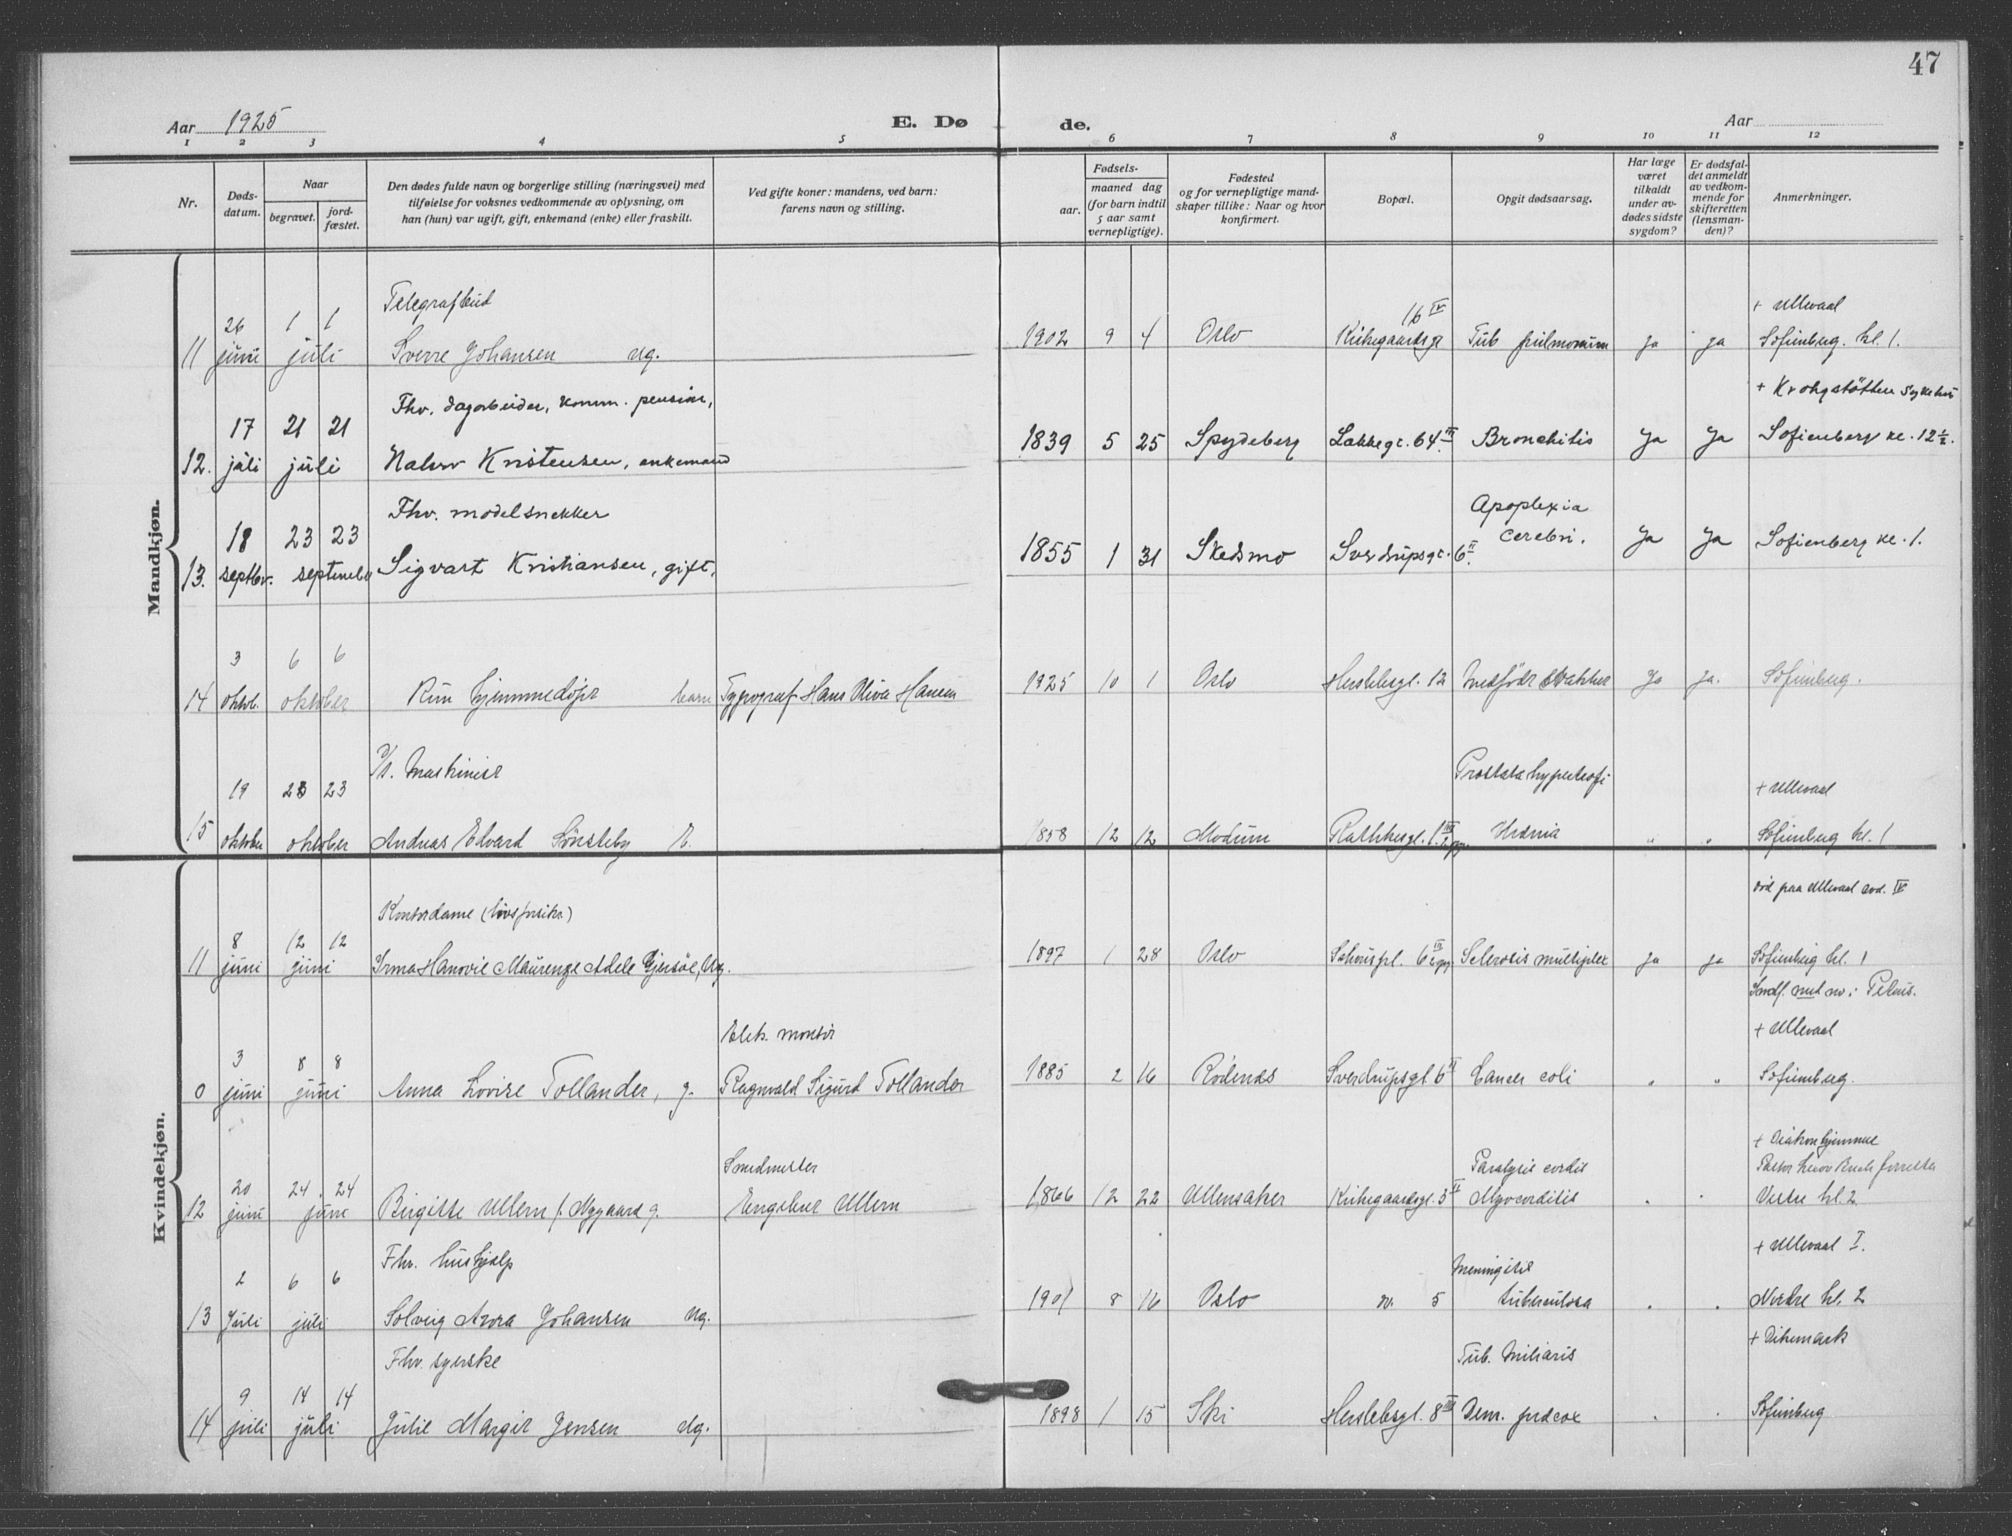 47
Aar 1925
E. Dø
de.
Aar
1 2 3 4 5 6 7 8 9 10 11 12
Nr.
Døds-
datum.
Naar
begravet.
jord-
fæstet.
Den dødes fulde navn og borgerlige stilling (næringsvei) med
tilføielse for voksnes vedkommende av oplysning, om
han (hun) var ugift, gift, enkemand (enke) eller fraskilt.
Ved gifte koner: mandens, ved barn:
farens navn og stilling.
Fødsels-
aar.
maaned dag
(for barn indtil
5 aar samt
vernepligtige).
Fødested
og for vernepligtige mand-
skaper tillike: Naar og hvor
konfirmert.
Bopæl.
Opgit dødsaarsag.
Har læge
været
tilkaldt
under av-
dødes sidste
sygdom?
Er dødsfal-
det anmeldt
av vedkom-
mende for
skifteretten
(lensman-
den)?
Anmerkninger.
Mandkjøn.
Telegrafbud 16 IV + Ullevaal
26 1 1
11 juni juli Sverre Johansen ug. 1902 9 4 Oslo Kirkegaardsgt Tub pulmonum ja ja Sofienberg. kl. 1.
Fhv. dagarbeider, komm. pension, + Krohgstøtten sykehus
17 21 21
12. juli juli Kristensen, enkemand 1839 5 25 Spydeberg Lakkegt. 64 III Bronchitis Ja Ja Sofienberg kl. 12 ½.
Fhv. modelsnekker Apoplexia
18 23 23
13. septbr. september Sigvart Kristiansen, gift, 1855 1 31 Skedsmo Sverdrupsgt. 6 II cerebri. Ja Ja Sofienberg kl. 1.
3 6 6
14 oktbr. oktober hjemmedøpt barn Typograf Hans Hansen 1925 10 1 Oslo Herslebsgt. 12 Medfødt svakhet Ja ja. Sofienberg.
Maskinist Prostatahypertrofi
19 23 23 + Ullevaal
15 oktober oktober Andreas Edvard Sønsteby E. 1858 12 12 Modum Rathkesgt. 1 III Urämia " " Sofienberg kl. 1
Kvindekjøn.
Kontordame (livsforsikr.) død paa Ullevaal avd. IV
8 12 12
11 juni juni Irma Hanovie Maurenze Adele Gjersøe, ug. 1897 1 28 Oslo Schouspl. 6 III Sclerosis multiplex ja ja Sofienberg kl. 1
Elek. montør + Ullevaal
3 8 8
0 juni juni Anna Lovise Tollander, g. Ragnvald Sigurd Tollander 1885 2 16 Rødenæs Sverdrupsgt 6 II Cancer coli " " Sofienberg.
Smedmester Paralysis cordis + Diakonhjemmet
20 24 24
12 juni juni Birgitte Ullern f. Nygaard g. Engebret Ullern 1866 12 22 Ullensaker Kirkegaardsgt. 3 II Myocarditis " " Vestre kl. 2
Fhv. hushjælp + Ullevaal I.
2 6 6 Meningitis
13 Juli juli Solveig Johansen ug. 1901 8 16 Oslo 5 tuberculosa " " Nordre kl. 2
Fhv. syerske Tub. Miliaris + Dikemark
9 14 14
14 juli juli Julie Margit Jensen ug. 1898 1 15 Ski Herslebsgt. 8 III Dem. præcox " " Sofienberg